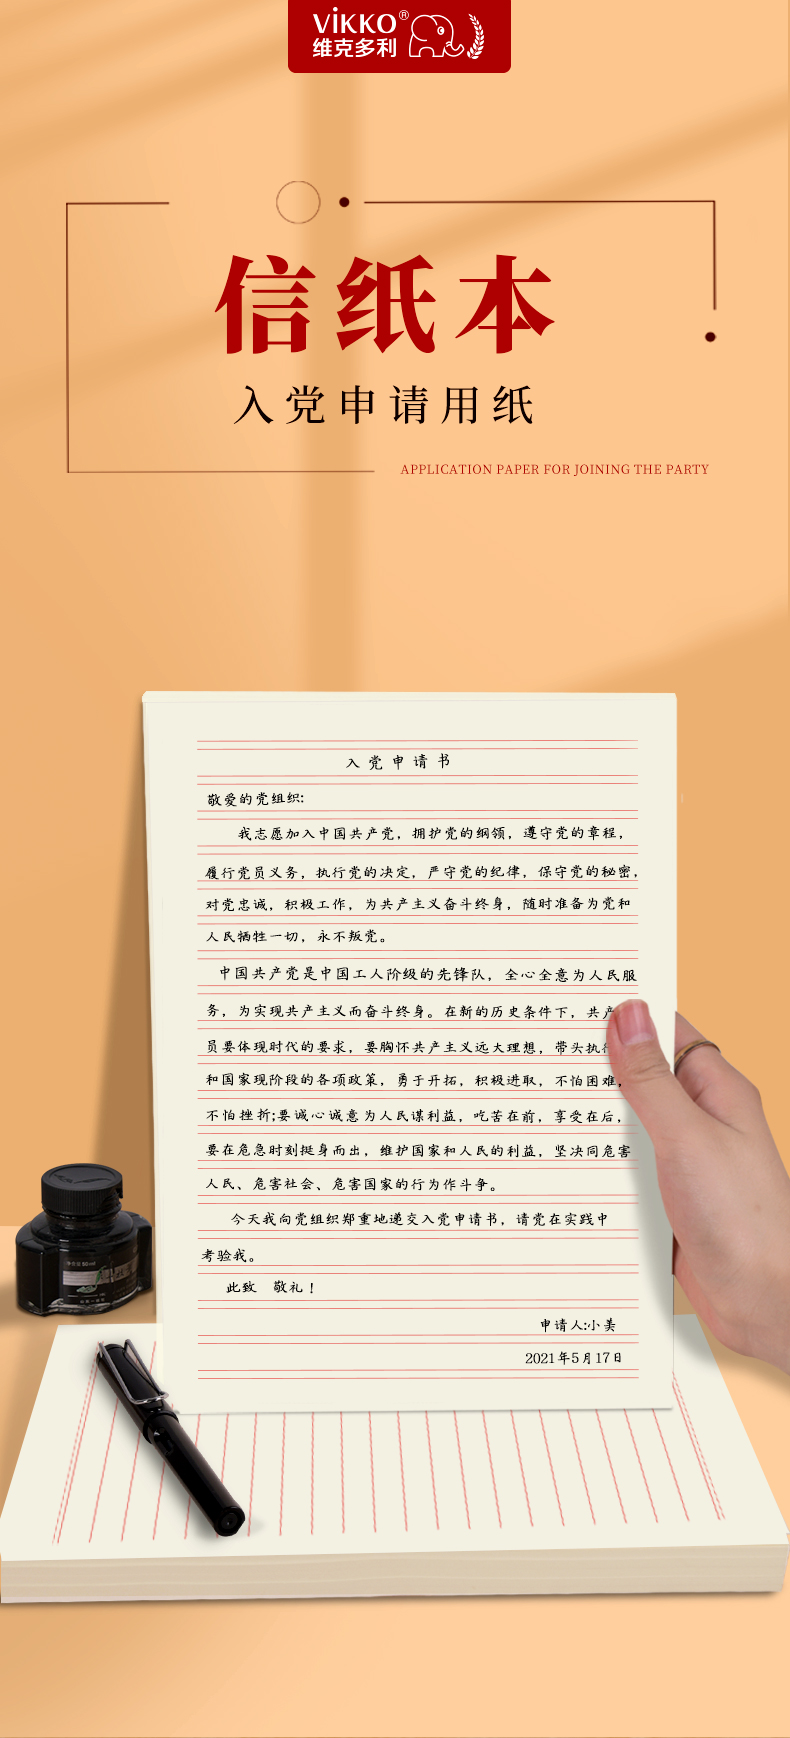 ViKKO®
维克多利
信纸本
入党申请用纸
APPLICATION PAPER FOR JOINING THE PARTY
入党申请书
敬爱的党组织:
我志愿加入中国共产党，拥护党的纲领，遵守党的章程，
履行党员义务，执行党的决定，严守党的纪律，保守党的秘密，
对党忠诚，积极工作，为共产主义奋斗终身，随时准备为党和
人民牺牲一切，永不叛党。
中国共产党是中国工人阶级的先锋队，全心全意为人民服
务，为实现共产主义而奋斗终身。在新的历史条件下，共产
员要体现时代的要求，要胸怀共产主义远大理想，带头执行
和国家现阶段的各项政策，勇于开拓，积极进取，不怕困难，
不怕挫折;要诚心诚意为人民谋利益，吃苦在前，享受在后，
要在危急时刻挺身而出，维护国家和人民的利益，坚决同危害
人民、危害社会、危害国家的行为作斗争。
今天我向党组织郑重地递交入党申请书，请党在实践中
考验我。
此致 敬礼！
申请人:小美
2021年5月17日